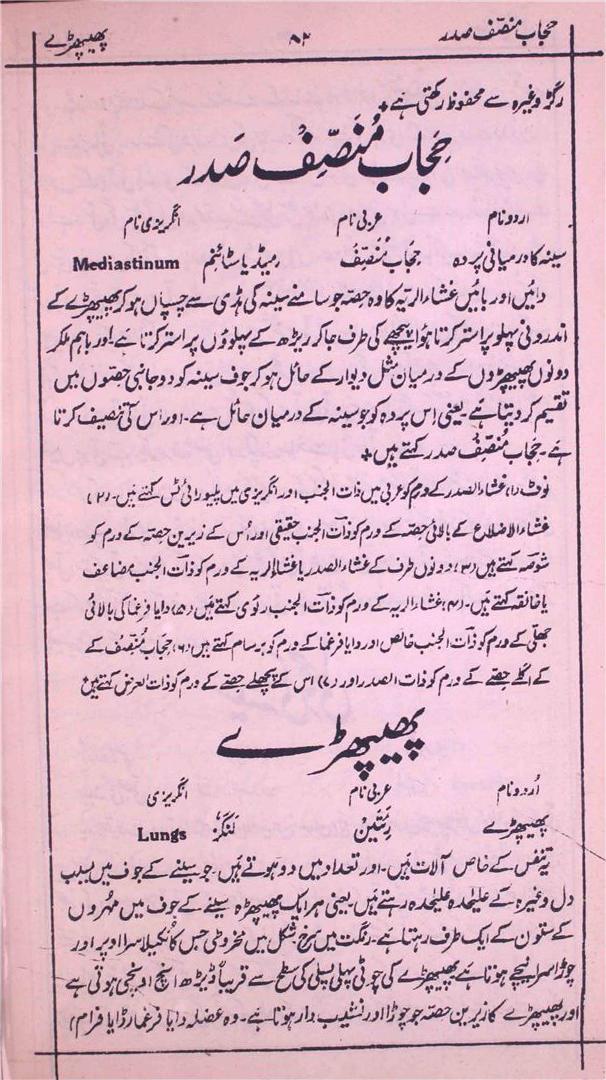 حجاب منصّف صدر ۸۲ پھیپھڑے
رگڑ وغیرہ سے محفوظ رکھتی ہے +
حِجَابِ مُنَصِّفُ صَدر
اردو نام عربی نام انگریزی نام
سینہ کا درمیانی پردہ حِجَاب مُنَصِّفْ (میڈیاسٹائنم Mediastinum
دائیں اور بائیں غشاء الریّہ کا وہ حصّہ جو سامنے سینہ کی ہڈی سے چسپاں ہو کر پھیپھڑے کے
اندرونی پہلو پر استر کرتا ہوا پیچھے کی طرف جا کر ریڑھ کے پہلوؤں پر استر کرتا ہے۔ اور باہم ملکر
دونوں پھیپھڑوں کے درمیان مثل دیوار کے حائل ہو کر جوف سینہ کو دو جانبی حصّوں میں
تقسیم کر دیتا ہے۔ یعنی اس پردہ کو جو سینہ کے درمیان حائل ہے۔ اور اس کی تنصیف کرتا
ہے۔ حجاب مُنصّفُ صدر کہتے ہیں +
نوٹ (۱) غشاء الصدر کے ورم کو عربی میں ذات الجنب اور انگریزی میں پلیورائی ٹس کہتے ہیں۔ (۲)
غشاء الاضلاع کے بالائی حصّہ کے ورم کو ذات الجنب حقیقی اور اُس کے زیرین حصّہ کے ورم کو
شوصہ کہتے ہیں (۳) دونوں طرف کے غشاء الصدر یا غشاء الریہ کے ورم کو ذات الجنب مضاعف
یا خانقہ کہتے ہیں۔ (۴) غشاء الریہ کے ورم کو ذات الجنب رئوی کہتے ہیں (۵) دایا فرغما کی بالائی
جھلّی کے ورم کو ذات الجنب خالص اور دایا فرغما کے ورم کو برسام کہتے ہیں (۶) حجاب مُنصّف کے
کے اگلے حصّے کے ورم کو ذات الصدر اور (۷) اس کے پچھلے حصّے کے ورم کو ذات العرض کہتے ہیں
پھیپھڑے
اُردو نام عربی نام انگریزی
پھیپھڑے رِئتین لنگز Lungs
یہ تنفّس کے خاص آلات ہیں۔ اور تعداد میں دو ہوتے ہیں۔ جو سینے کے جوف میں بسبب
دل وغیرہ کے علیٰحدہ علیٰحدہ رہتے ہیں۔ یعنی ہر ایک پھیپھڑہ سینے کے جوف میں مُہروں
کے ستون کے ایک طرف رہتا ہے۔ رنگت میں سرخ شکل میں مخروطی جس کا نکیلا سرا اوپر اور
چوڑا سرا نیچے ہوتا ہے پھیپھڑے کی چوٹی پہلی پسلی کی سطح سے قریباً ڈیڑھ انچ اونچی ہوتی ہے
اور پھیپھڑے کا زیرین حصّہ جو چوڑا اور نشیب دار ہوتا ہے۔ وہ عضلہ دایا فرغما (ڈایا فرام)